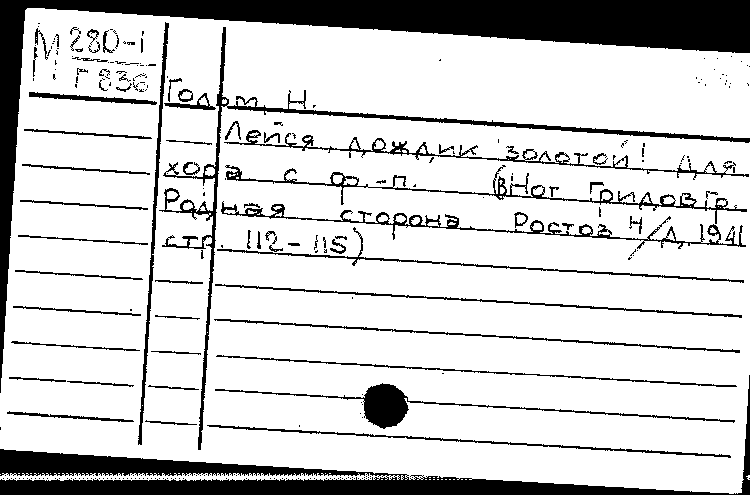 М 280-1
Г 836
Гольт, Н.
Лейся, дождик золотой! Для
хора с ф.-п. (В нот Гридов Гр.
Родная сторона. Ростов н/Д, 1941
стр. 112-115)